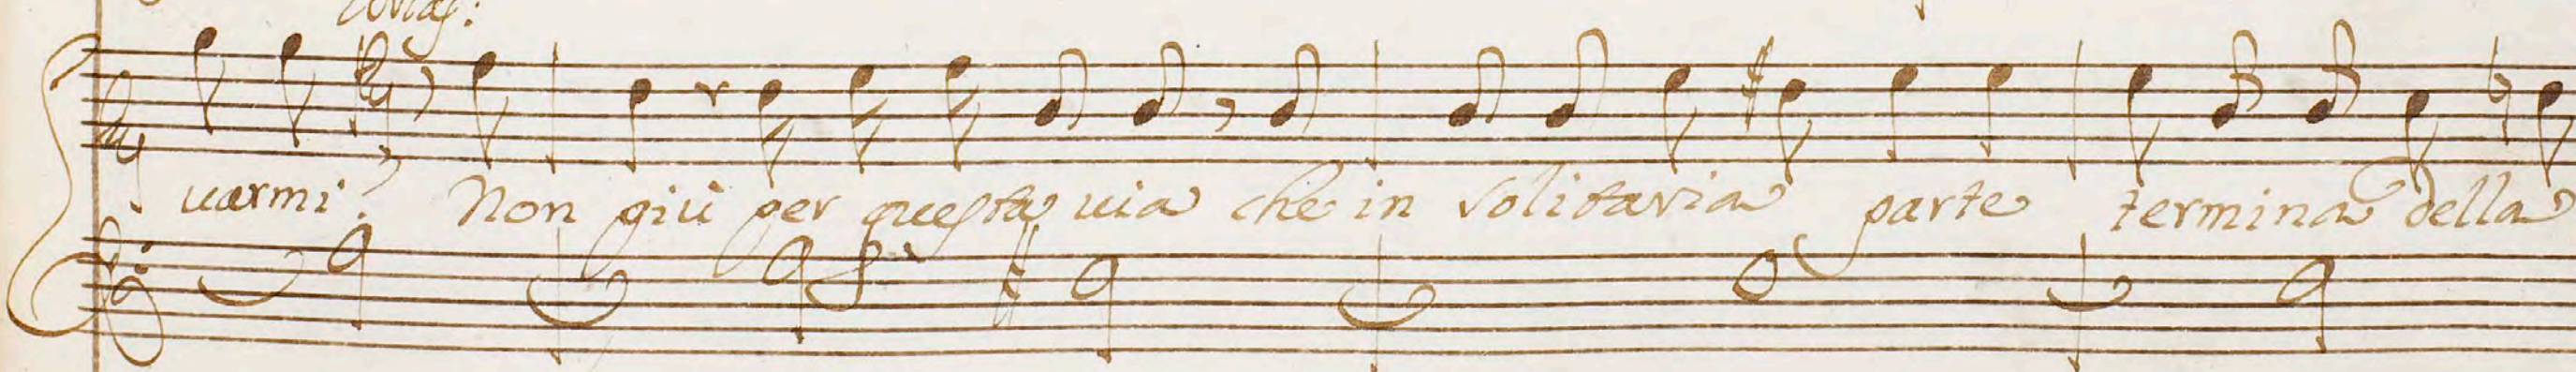 uarmi? Non giù per questa uia che in solitaria parte termina della